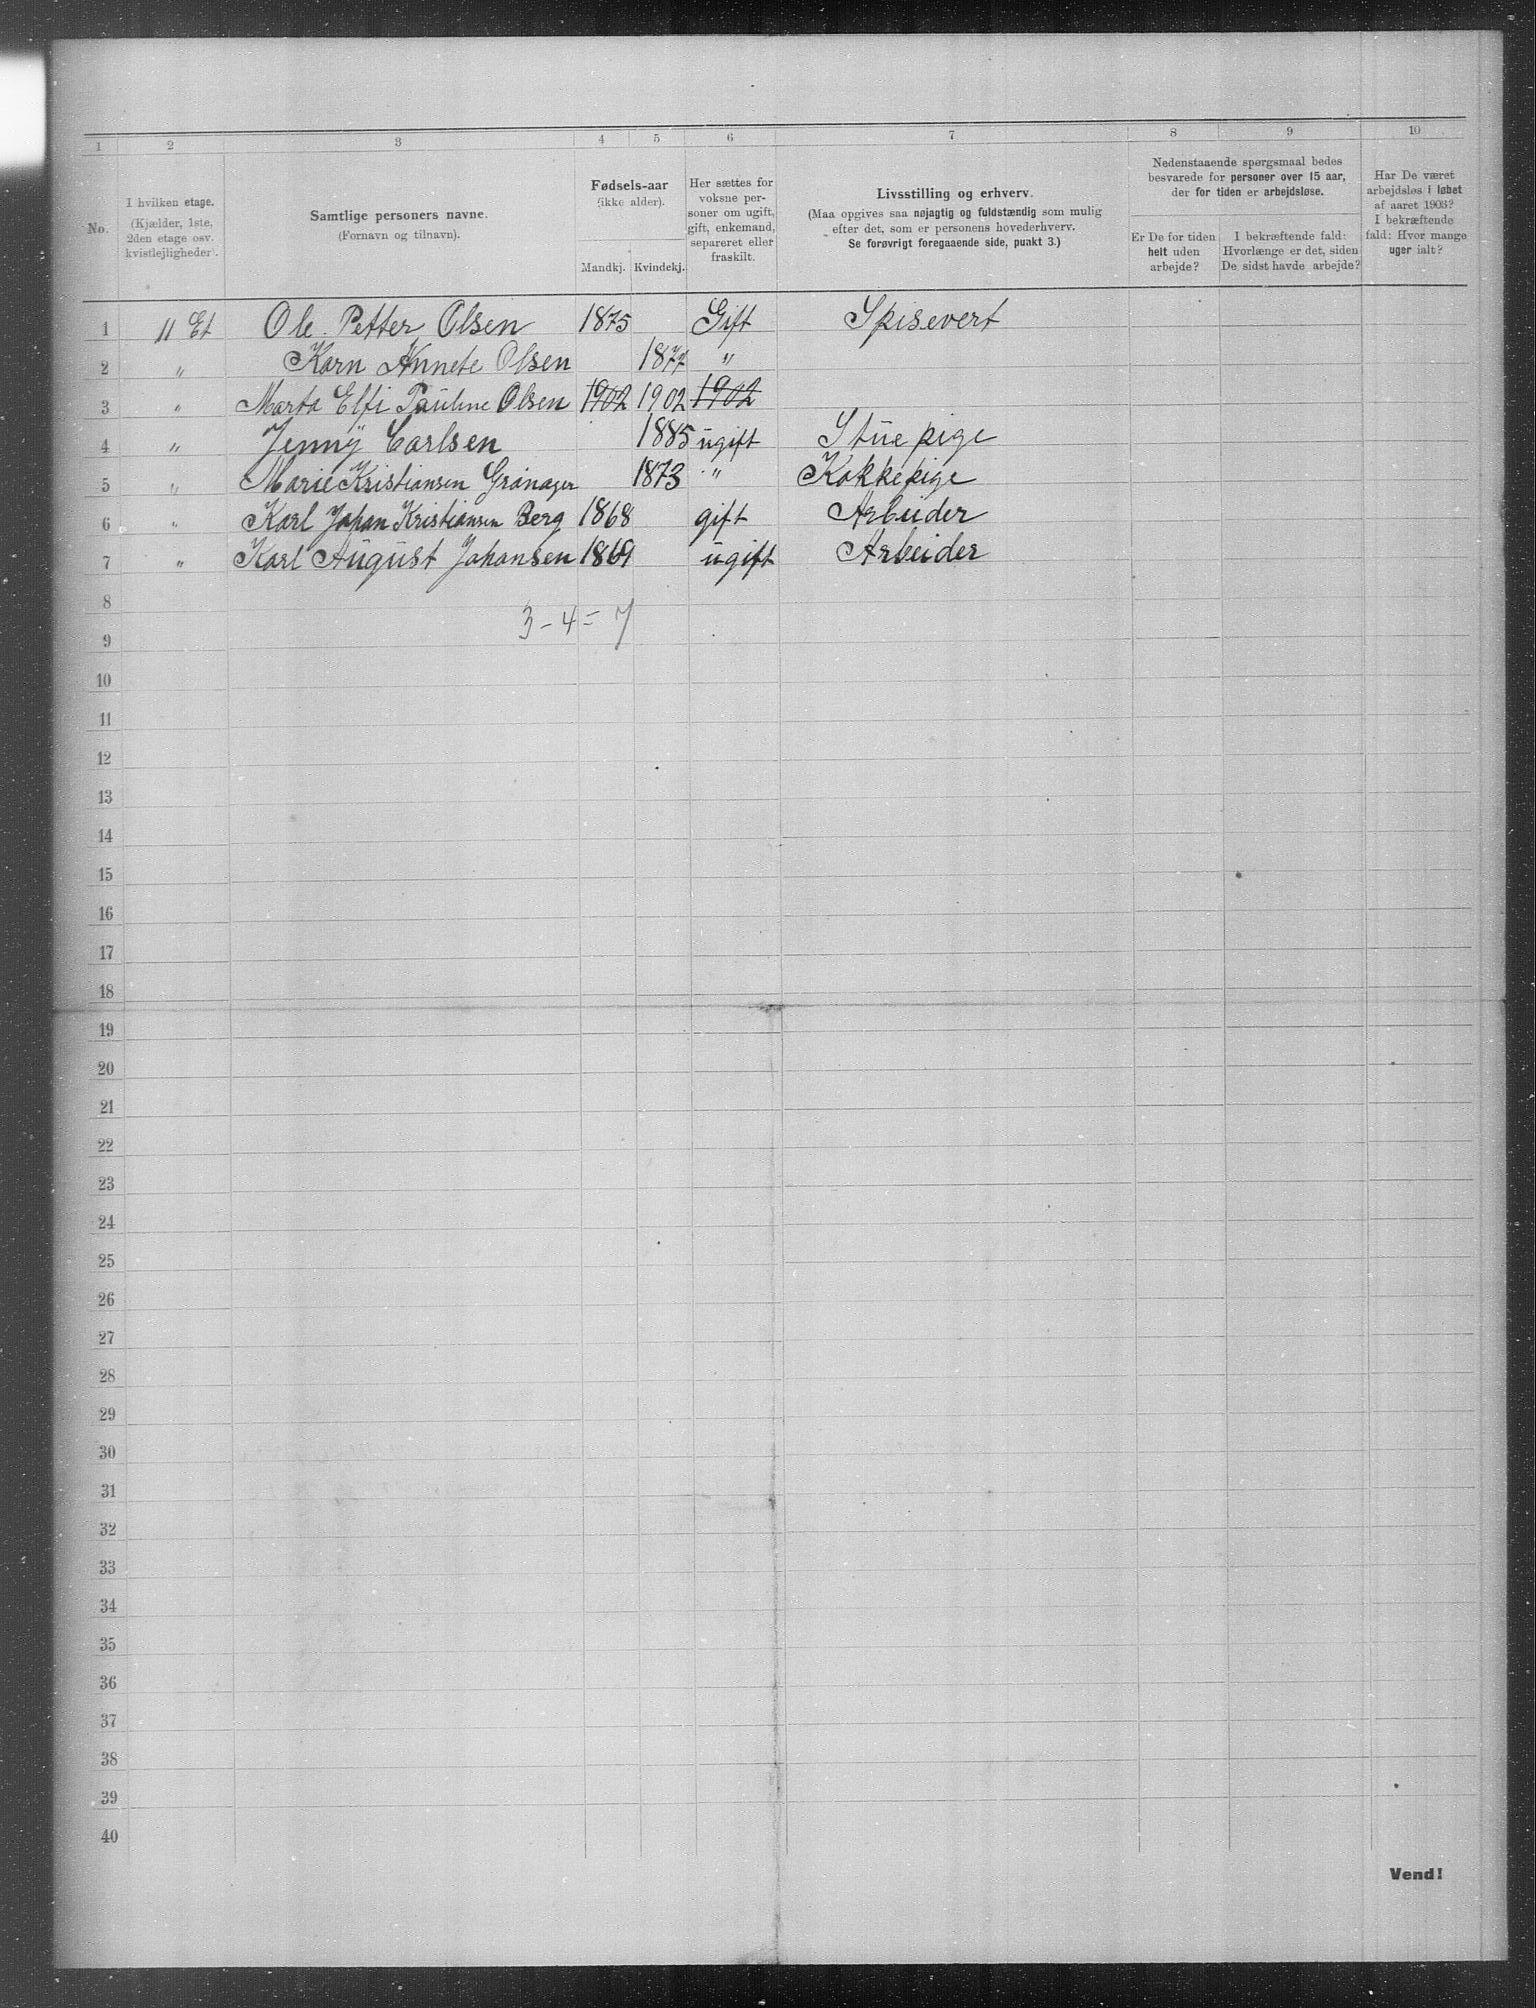 1 2 3 4 5 6 7 8 9 10
No.
I hvilken etage.
(Kjælder, 1ste,
2den etage osv.
kvistlejligheder).
Samtlige personers navne.
(Fornavn og tilnavn).
Fødsels-aar
(ikke alder).
Mandkj. Kvindekj.
Her sættes for
voksne per-
soner om ugift,
gift, enkemand,
separeret eller
fraskilt.
Livsstilling og erhverv.
(Maa opgives saa nøjagtig og fuldstændig som mulig
efter det, som er personens hovederhverv.
Se forøvrigt foregaaende side, punkt 3.)
Nedenstaaende spørgsmaal bedes
besvarede for personer over 15 aar,
der for tiden er arbejdsløse.
Er De for tiden
helt uden
arbejde?
I bekræftende fald:
Hvorlænge er det, siden
De sidst havde arbejde?
Har De været
arbejdsløs i løbet
af aaret 1903?
I bekræftende
fald: Hvor mange
uger ialt?
1 11 Et Ole Petter Olsen 1875 Gift Spisevert
2 " Karn Annete Olsen 1877 "
3 " Marta Elfi Pauline Olsen 1902 1902 1902
4 " Jenny Carlsen 1885 ugift Stue pige
5 " Marie Kristiansen Grønager 1873 " Kokkepige
6 " Karl Johan Kristiansen Berg 1868 gift Arbeider
7 " Karl August Johansen 1869 ugift Arbeider
8
3-4=7
9
10
11
12
13
14
15
16
17
18
19
20
21
22
23
24
25
26
27
28
29
30
31
32
33
34
35
36
37
38
39
40
Vend!